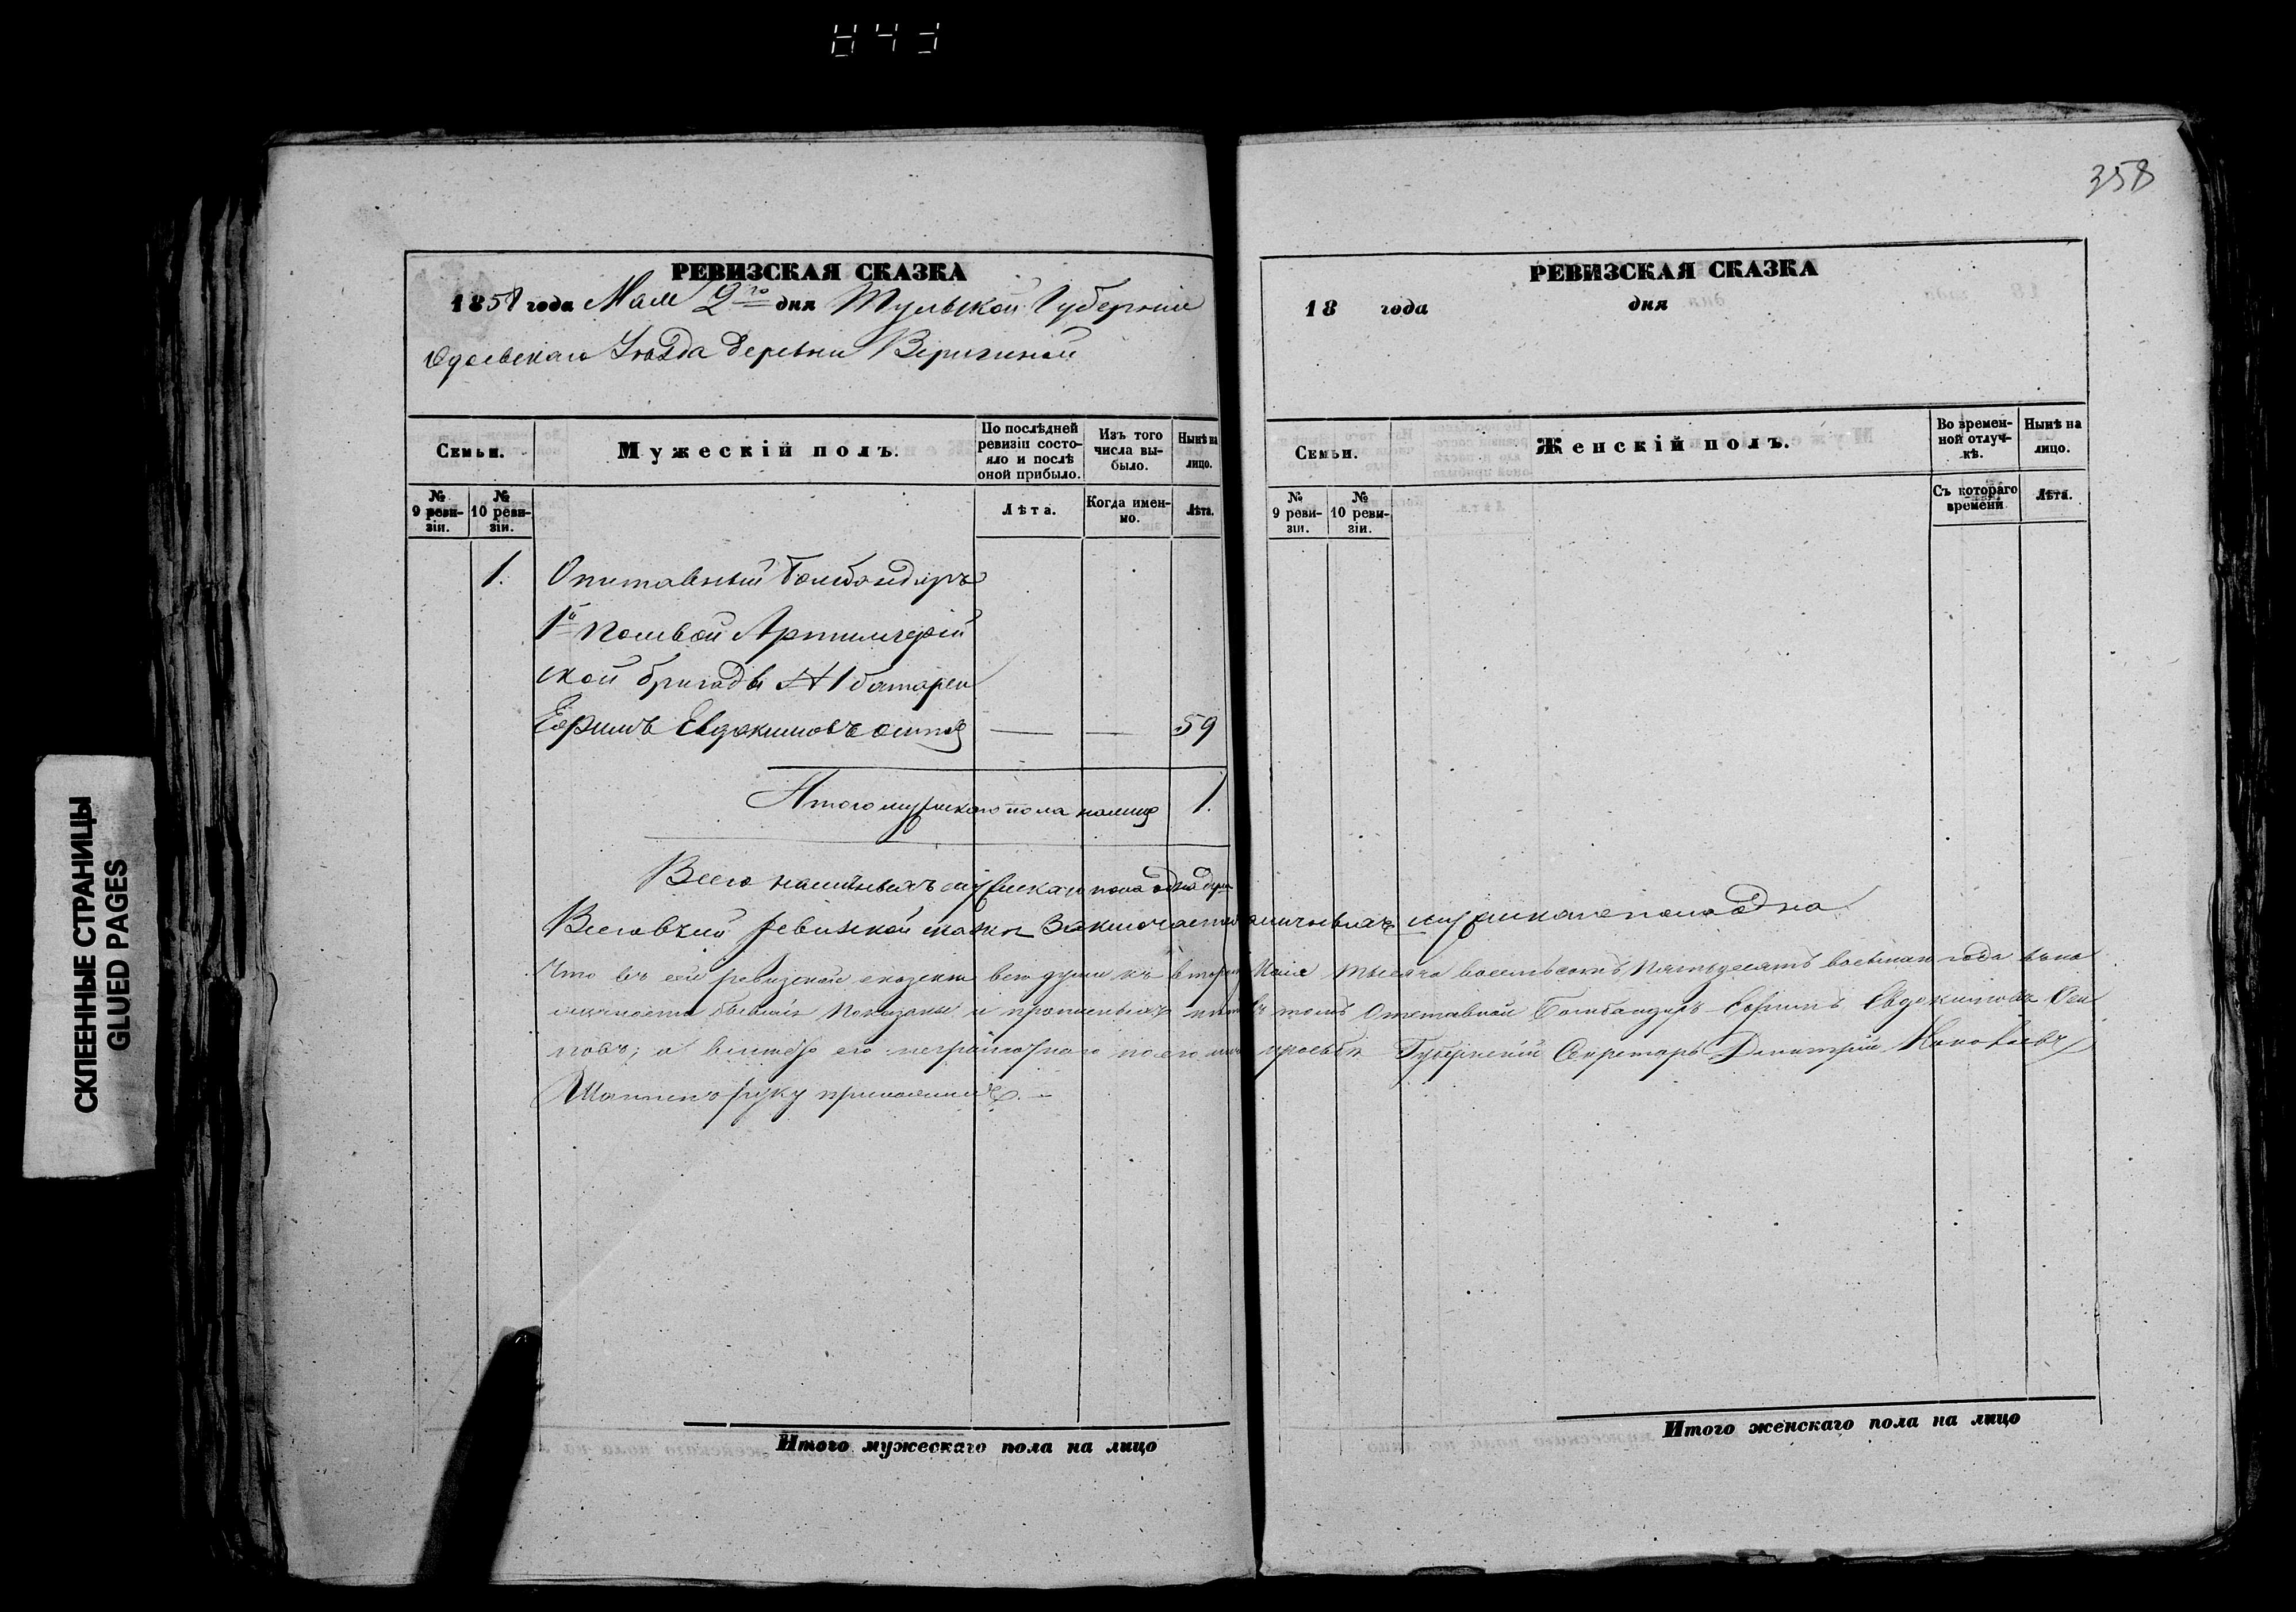 843
358
СКЛЕЕННЫЕ СТРАНИЦЫ
GLUED PAGES
РЕВИЗСКАЯ СКАЗКА
1858 года Мая 2го дня Тульской Губерніи
Одоевскаго Уѣзда деревни Веригиной
Семьи.
Мужескій полъ.
По послѣдней ревизіи состояло и послѣ оной прибыло.
Изъ того числа выбыло.
Нынѣ на лицо.
№ 9 ревизіи.
№ 10 ревизіи.
Лѣта.
Когда именно.
Лѣта.
1. Отставный Бомбандиръ
1й Полевой Артилерій
ской бригады №1 батареи
Ефимъ Евдокимовъ Осипов — — 59
Итого мужскаго пола налицо 1.
Всего наличныхъ мужскаго пола одна душа
Всего въ сей ревизской сказкѣ заключается наличныхъ мужскаго пола одна
Что въ сей ревизской сказкѣ все души къ второму Маія тысяча восемьсотъ пятьдесятъ восьмаго года въ на
личности бывшія показаны и прописныхъ нѣтъ въ томъ Отставной Бомбандиръ Ефимъ Евдокимовъ Оси
повъ; а вместо его неграмотнаго по его просьбѣ Губернскій Секретарь Дмитрій
руку приложилъ. —
Итого мужескаго пола на лицо
РЕВИЗСКАЯ СКАЗКА
18 года дня
Семьи.
Женскій полъ.
Во временной отлучкѣ.
Нынѣ на лицо.
№ 9 ревизіи.
№ 10 ревизіи.
Съ котораго времени
Лѣта.
Итого женскаго пола на лицо